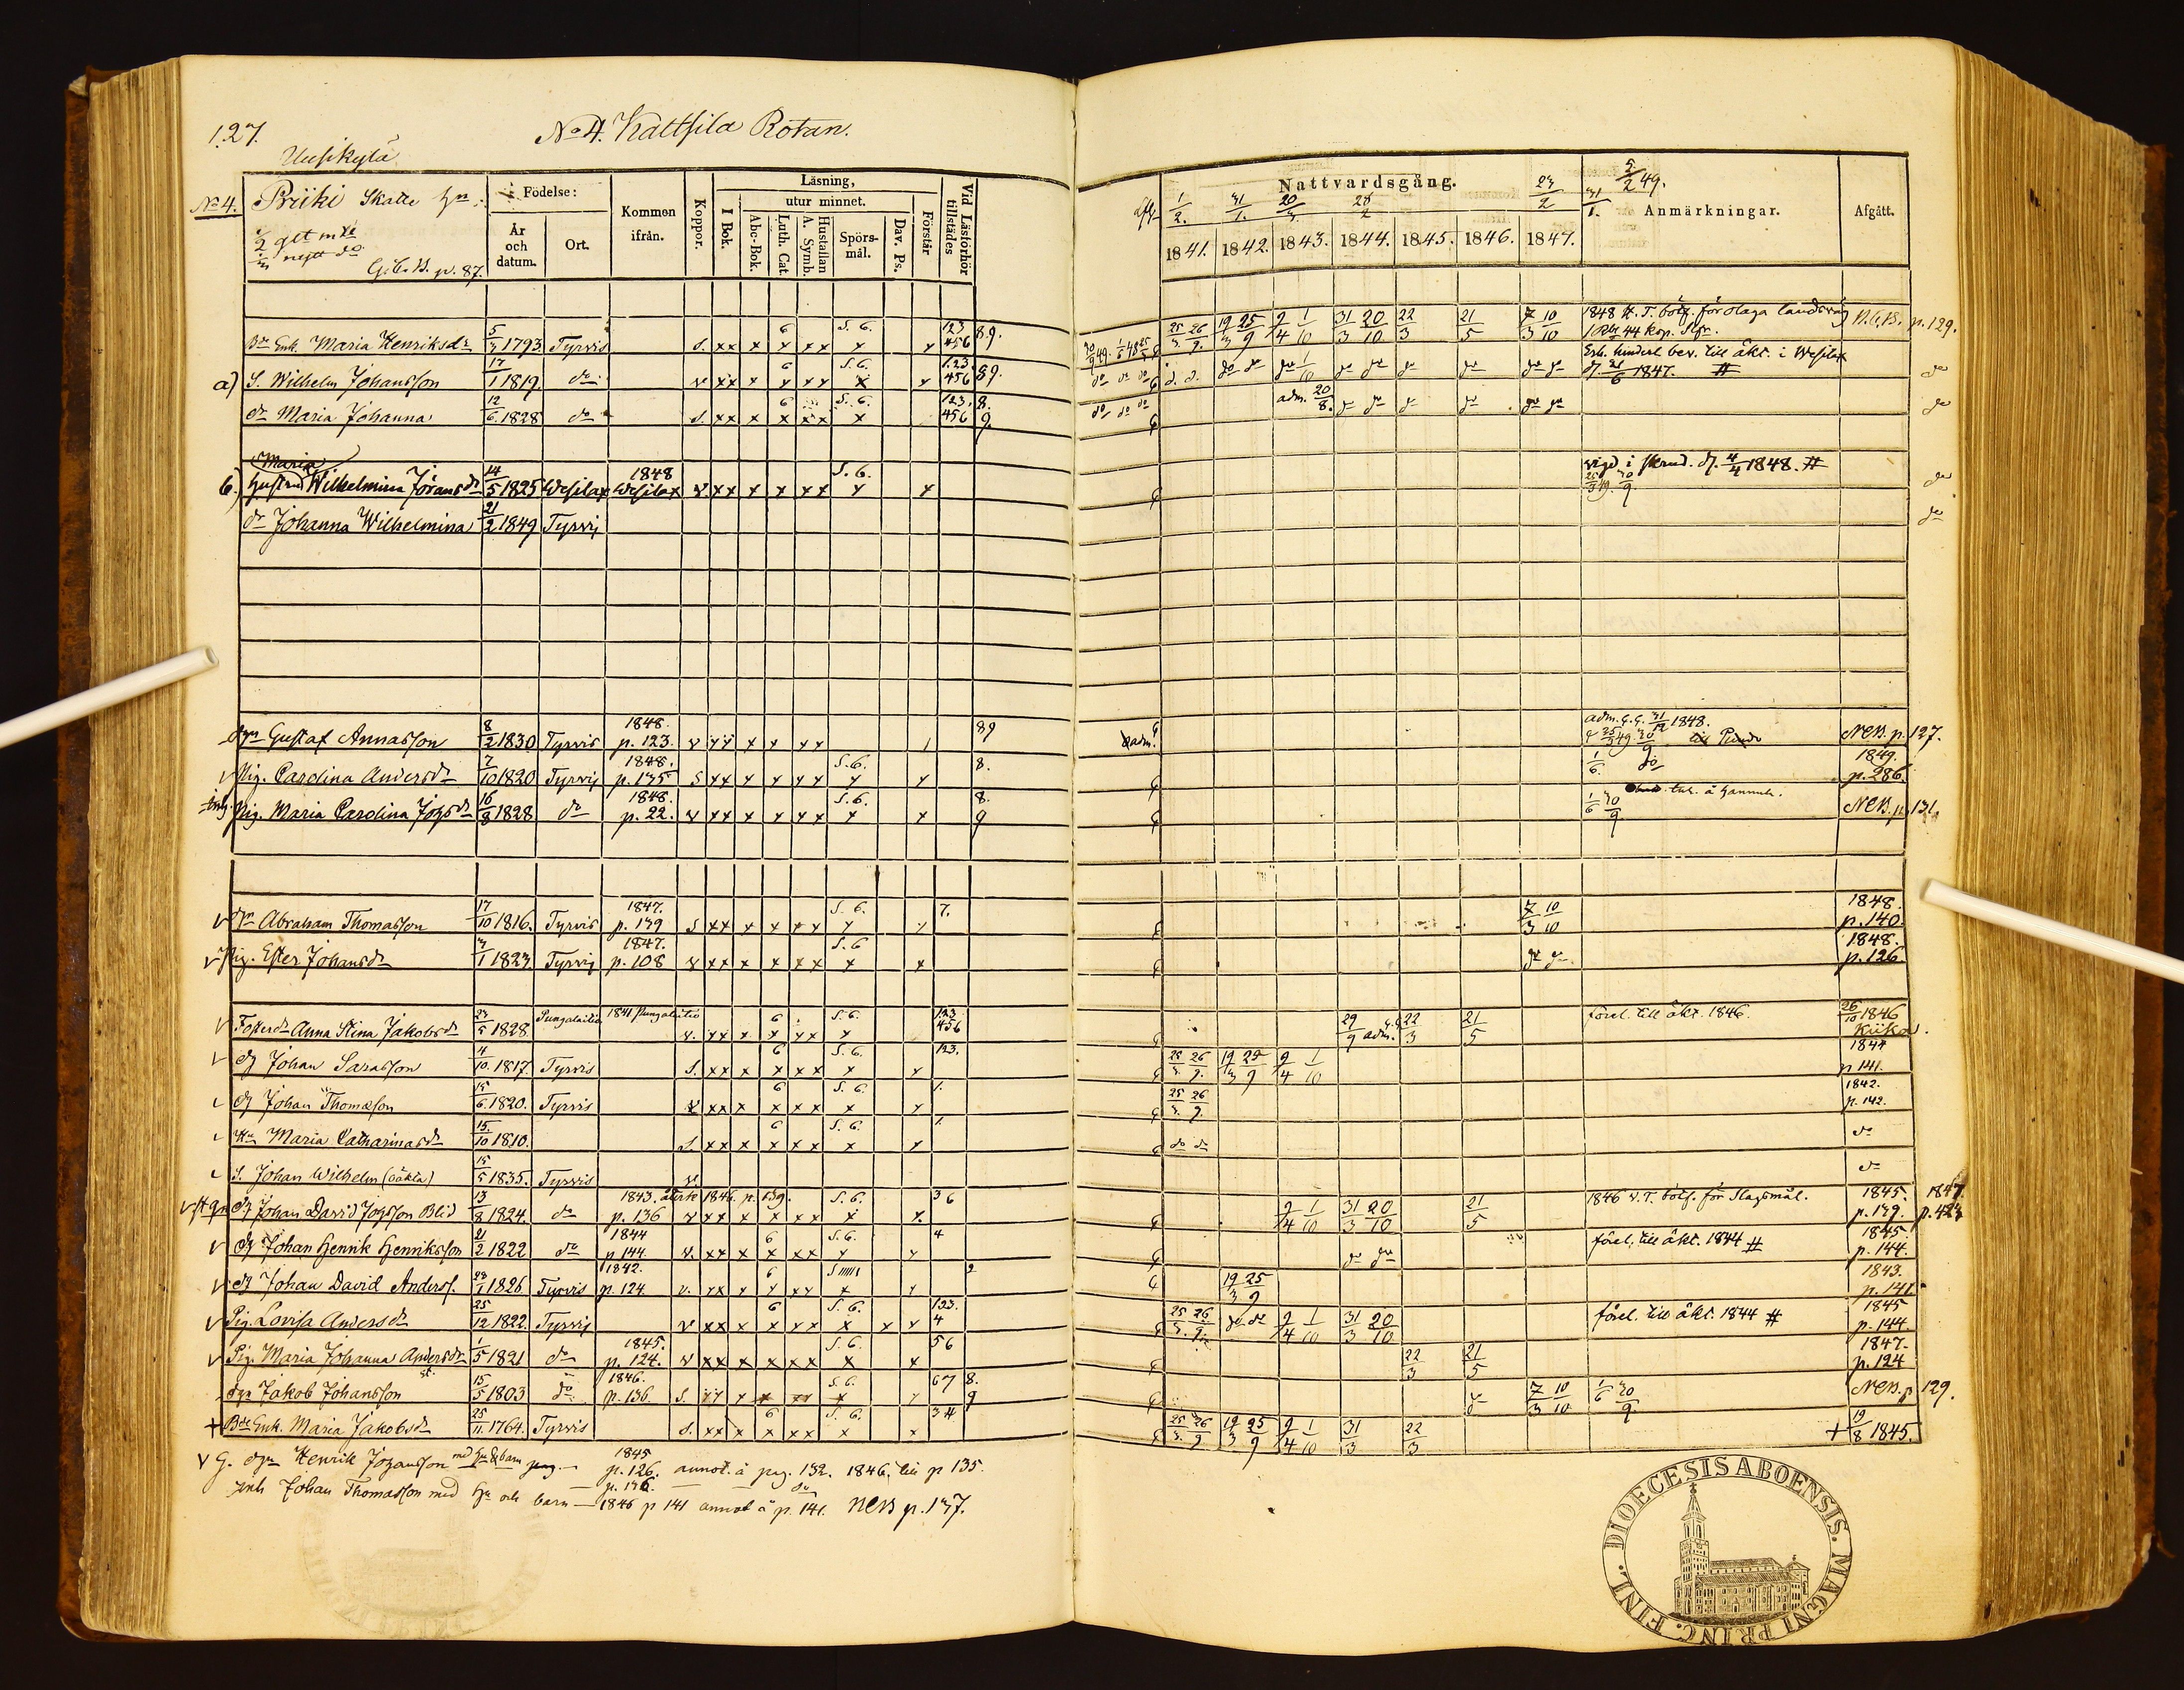 127.
No 4. Kattsila Rotan.
Uusikylä
No 4. Priiki Skatte Hn.
G.C.B. p. 87.
Födelse:
År och datum.
Ort.
Kommen ifrån.
Koppor.
Läsning,
I Bok.
utur minnet.
Abc-Bok.
Luth. Cat.
Hustaflan A. Symb.
Spörsmål.
Dav. Ps.
Förstår
Vid Läsförhör tillstädes
Nattvardsgång.
1/2. 31/1. 20/3. 23/2 31/1. 5/2 49.
1841. 1842. 1843. 1844. 1845. 1846. 1847.
Anmärkningar.
Afgått.
Bde Enk. Maria Henriksdr 5/3 1793. Tyrvis S. x x x 6 x x x S. 6. x x 123 456 89. 25/3 26/9. 19/3 25/9 2/4 1/10 31/3 20/10 22/3 21/5 7/3 10/10 N.C.B. p. 129.
a) S. Wilhelm Johansson 17/1 1819. do v x x x 6 x x x S. 6. x x 123. 456 89. do
d. 21/6 1847. #
dr Maria Johanna 12/6. 1828 do S. x x x 6 x x x S. 6. x 123. 456 8. 9. adm. 20/8. do
b.) Maria
Hustru Wilhelmina Jöransdr 14/5 1825 Wesilax 1848 Wesilax v x x x x x x S. 6. x x d. 4/4 1848. # do
dr Johanna Wilhelmina 21/2 1849 Tyrvis do
drn Gustaf Annasson 8/2 1830 Tyrvis 1848. p. 123. v x x x x x x 89 adm. 31/12 1848. NCB. p. 127.
Pig. Carolina Andersdr 7/10 1820 Tyrvis 1848. p. 135 S x x x x x x S. 6. x x 8. 1/6. do 1849. p. 286.
inh. Pig. Maria Carolina Johsdr 16/8 1828 do 1848. p. 22. v x x x x x x S. 6. x x 8. 9 1/6 30/9. NCB. p. 131.
drn Abraham Thomasson 17/10 1816. Tyrvis 1847. p. 139 S x x x x x x S. 6. x x 7. 7/3 10/10 1848. p. 140.
Pig. Ester Johansdr 3/1 1823. Tyrvis 1847. p. 108 v x x x x x x S. 6 x x do do 1848. p. 126.
Fosterdr Anna Stina Jakobsdr 23/5 1828. Pungalaitio 1841 Pungalaitio v. x x x 6 x x x S. 6. x 123 456 29/9 adm. 22/3 21/5 förel. till åkt. 1846. 26/10 1846 Kiika.
dg Johan Sarasson 4/10. 1817. Tyrvis S. x x x 6 x x x S. 6. x x 123. 25/3. 26/9. 19/3 25/9 2/4 1/10 1844 p 141.
dg Johan Thomasson 15/6. 1820. Tyrvis v x x x 6 x x x S. 6. x x 1. 25/3. 26/9. 1842. p. 142.
Hu Maria Catharinasdr 15./10 1810. S. x x x 6 x x x S. 6. x x 1. do do do
S. Johan Wilhelm (oäkta) 15/5 1835. Tyrvis v. do
dg Johan David Johsson Blid 13/8 1824. do 1843. återk 1846. p. 139. p. 136 v x x x x x x S. 6. x x 36 2/4 1/10 31/3 20/10 21/5 1846 v. T. bötf. för slagsmål. 1845. p. 139. 1847. p. 423
dg Johan Henrik Henriksson 21/2 1822 do 1844 p 144. v. x x x 6 x x x S. 6. x x 4 do do förel. till åkt. 1844 # 1845. p. 144.
dg Johan David Anderss. 28/1 1826. Tyrvis 1842. p. 124. v. x x x 6 x x x x x 2 19/3 25/9 1843. p. 141.
Pig. Lovisa Andersdr 25/12 1822. Tyrvis v x x x 6 x x x S. 6. x x x 123. 4 25/3. 26/9. do do 2/4 1/10 31/3 20/10 förel. till åkt. 1844 # 1845 p. 144.
Pig. Maria Johanna Andersdr 1/5 1821 do 1845. p. 124. v x x x x x x S. 6. x x 56 22/3 21/5 1847. p. 124
drn Jakob Johansson 15/5 1803 do 1846. p. 136. S. x x x x x x S. 6. x x 67 8. 9 do 7/3 10/10 1/6 30/9. NCB. p 129.
+ Bde Enk. Maria Jakobsdr 25/11. 1764. Tyrvis S. x x x 6 x x x S. 6. x x 34 25/3. 26/9 19/3 25/9 2/4 1/10 31/3 22/3 + 19/8 1845.
v G. drn Henrik Johansson med hu & barn 1845 p. 126. annot. å pag. 132. 1846, till p 135.
p. 136. do
inh Johan Thomasson med hu och barn — 1846 p 141 annot å p. 141. NCB p. 137.
DIOECESIS ABOENSIS. MAGNI PRINC. FINL.